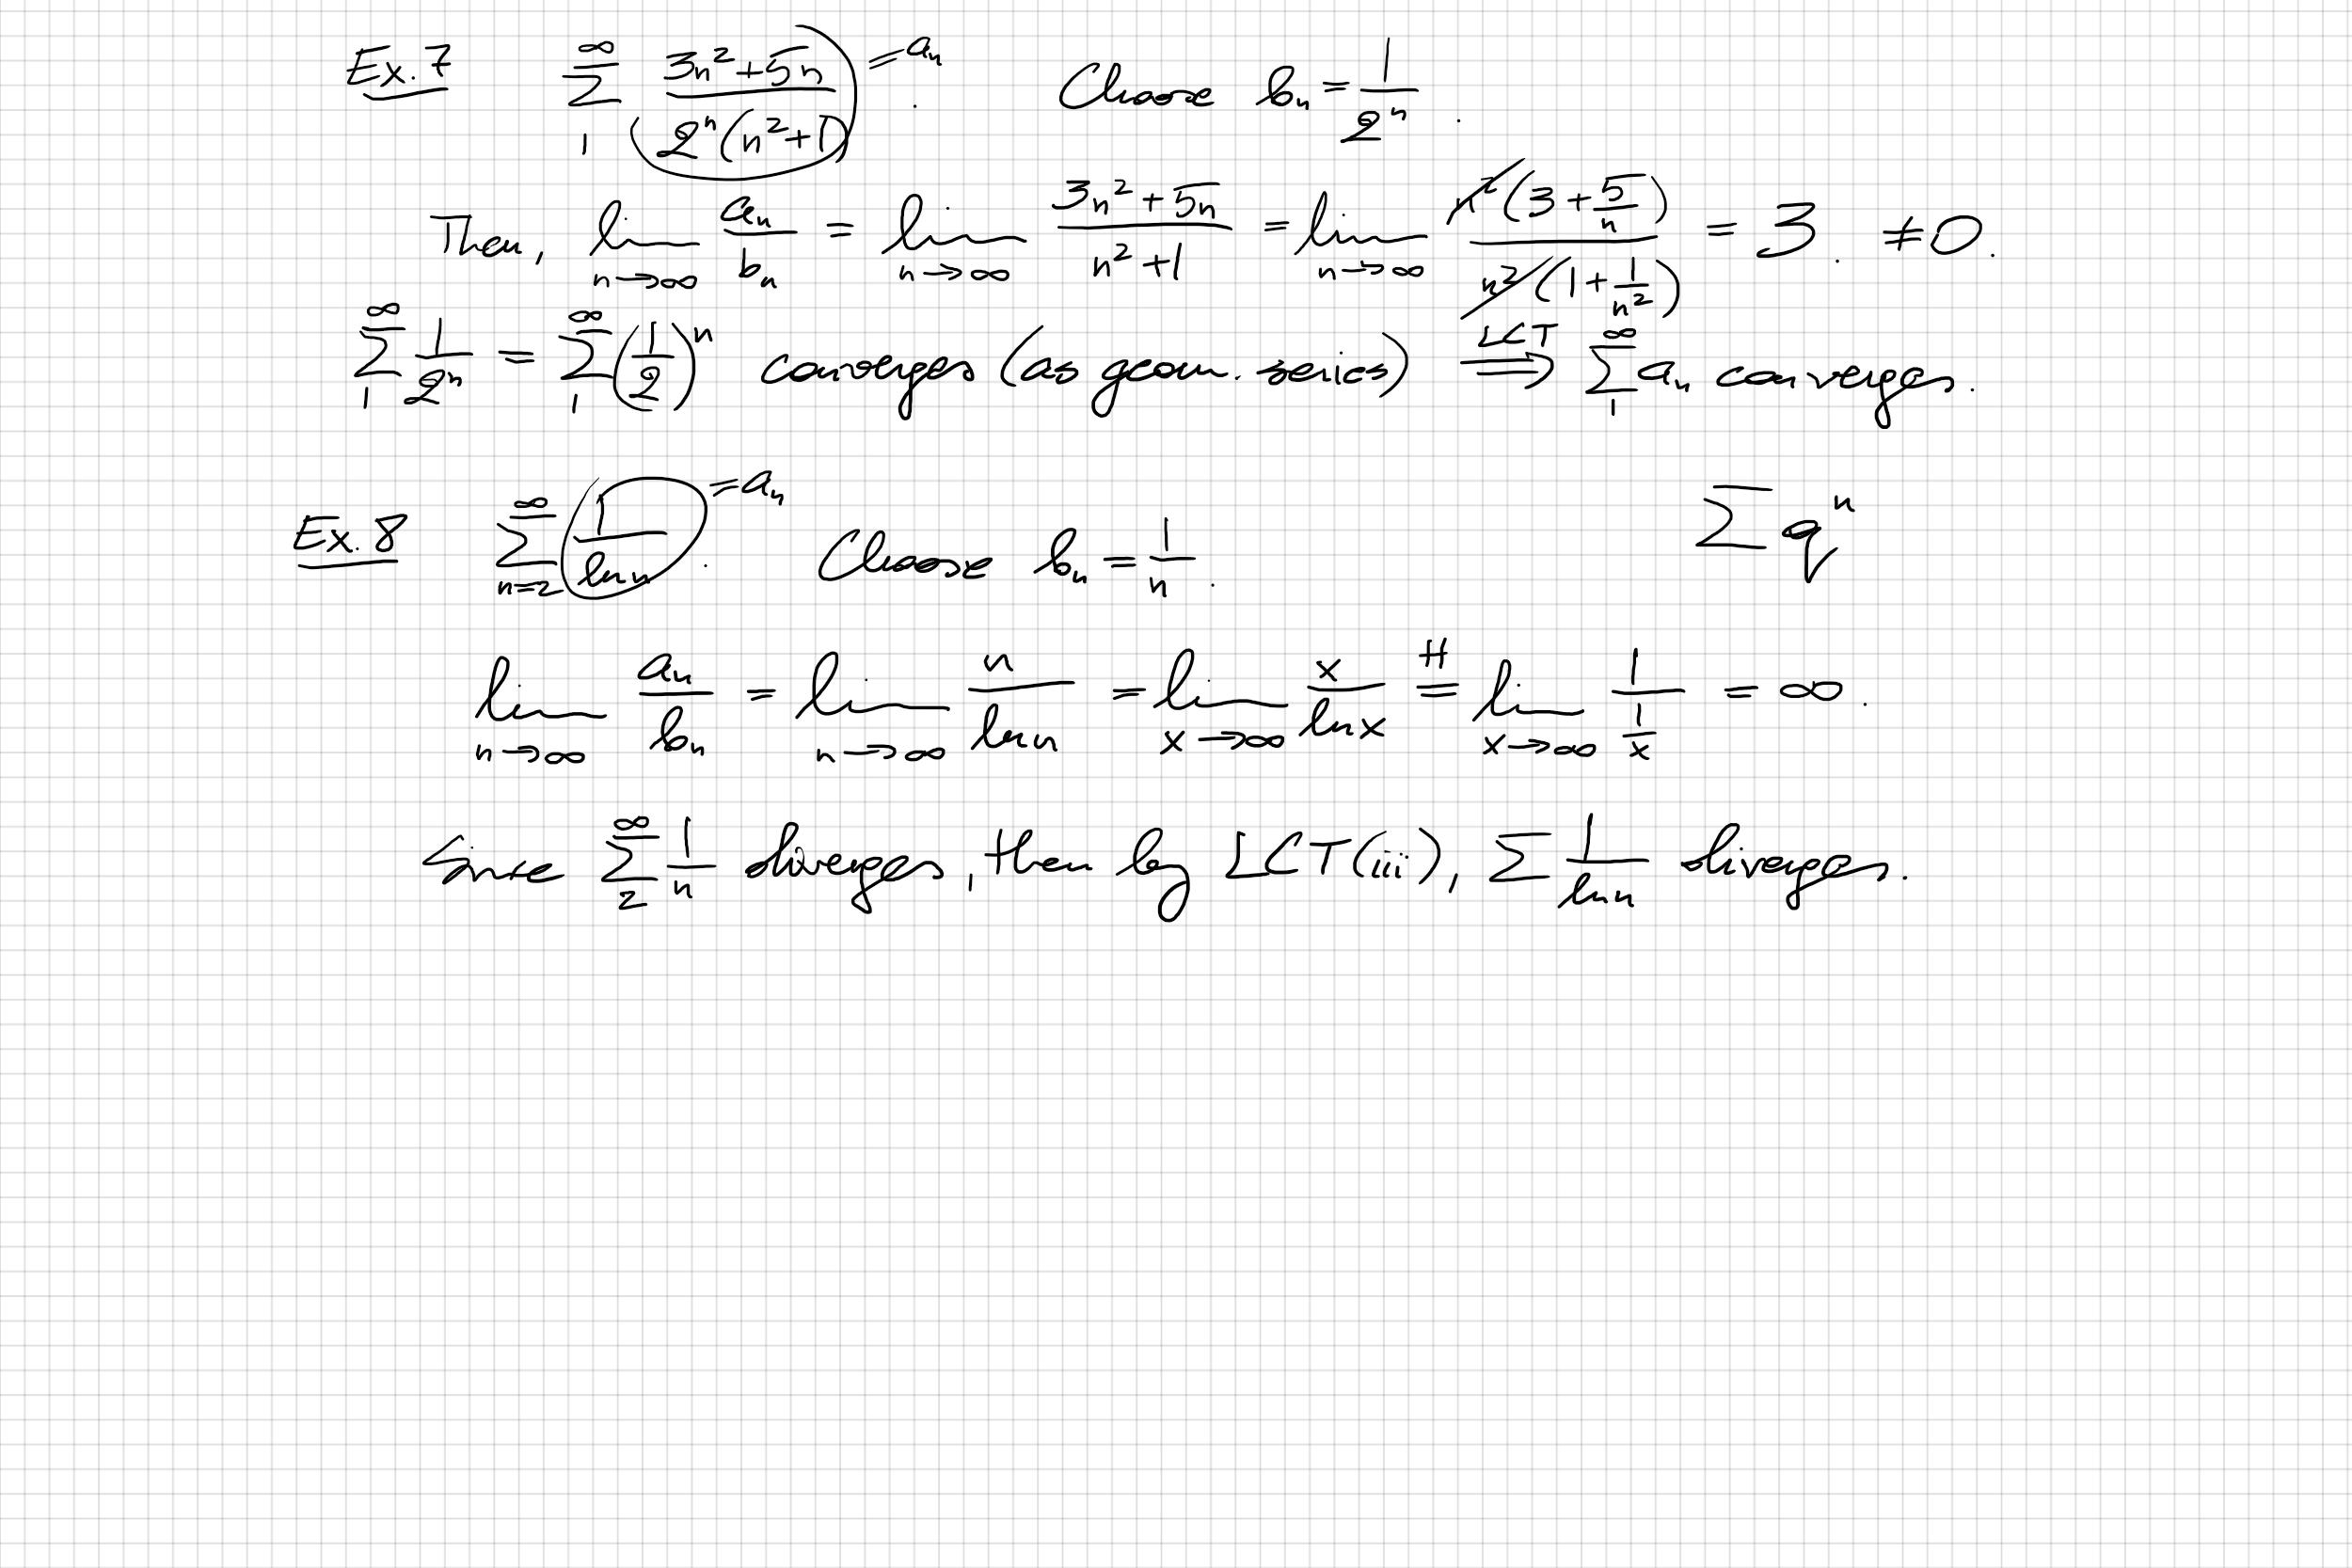 Ex. 7 ∑_1^∞ (3n²+5n)/(2ⁿ(n²+1)) = aₙ . Choose bₙ = 1/2ⁿ .
Then, lim_{n→∞} aₙ/bₙ = lim_{n→∞} (3n²+5n)/(n²+1) = lim_{n→∞} n²(3+5/n)/(n²(1+1/n²)) = 3. ≠0.
∑_1^∞ 1/2ⁿ = ∑_1^∞ (1/2)ⁿ converges (as geom. series) ⟹^{LCT} ∑_1^∞ aₙ converges.
Ex. 8 ∑_{n=2}^∞ 1/ln n = aₙ . Choose bₙ = 1/n . ∑ qⁿ
lim_{n→∞} aₙ/bₙ = lim_{n→∞} n/ln n = lim_{x→∞} x/ln x =^H lim_{x→∞} 1/(1/x) = ∞ .
Since ∑_2^∞ 1/n diverges, then by LCT(iii), ∑ 1/ln n diverges.